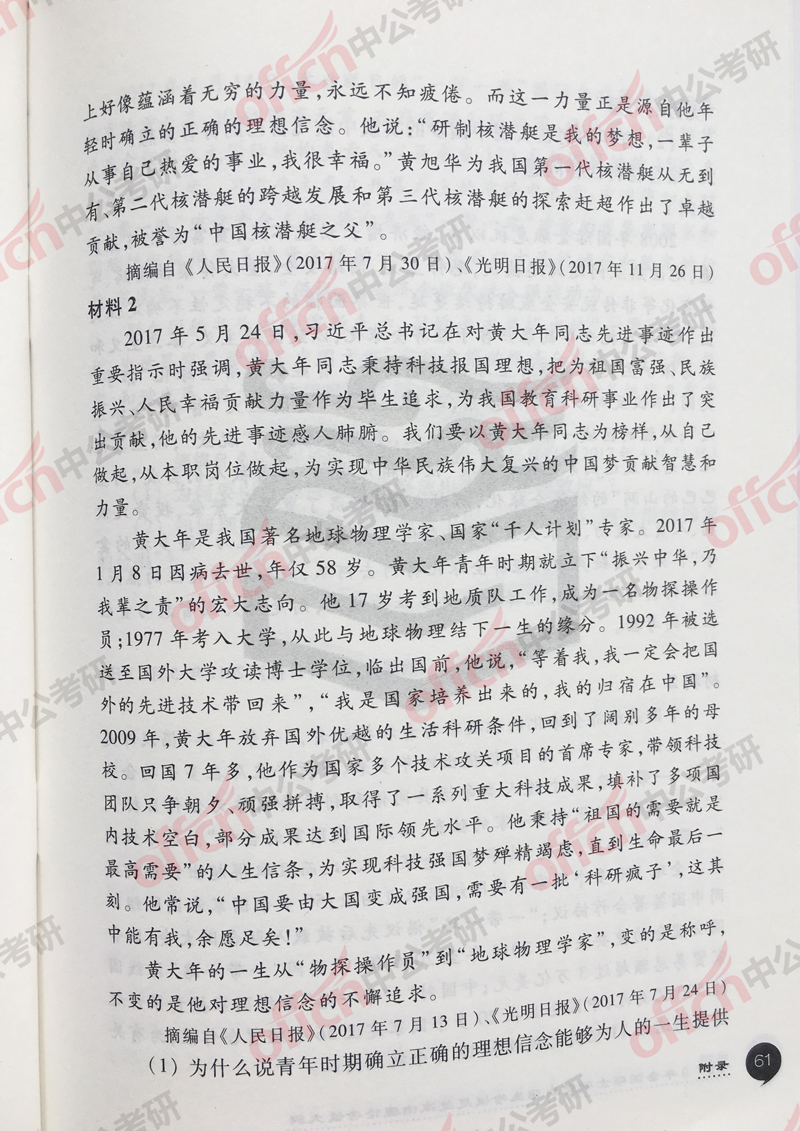 上好像蕴涵着无穷的力量,永远不知疲倦。而这一力量正是源自他年
轻时确立的正确的理想信念。他说:“研制核潜艇是我的梦想,一辈子
从事自己热爱的事业,我很幸福。”黄旭华为我国第一代核潜艇从无到
有、第二代核潜艇的跨越发展和第三代核潜艇的探索赶超作出了卓越
贡献,被誉为“中国核潜艇之父”。
摘编自《人民日报》(2017年7月30日)、《光明日报》(2017年11月26日)
材料2
2017年5月24日,习近平总书记在对黄大年同志先进事迹作出
重要指示时强调,黄大年同志秉持科技报国理想,把为祖国富强、民族
振兴、人民幸福贡献力量作为毕生追求,为我国教育科研事业作出了突
出贡献,他的先进事迹感人肺腑。我们要以黄大年同志为榜样,从自己
做起,从本职岗位做起,为实现中华民族伟大复兴的中国梦贡献智慧和
力量。
黄大年是我国著名地球物理学家、国家“千人计划”专家。2017年
1月8日因病去世,年仅58岁。黄大年青年时期就立下“振兴中华,乃
我辈之责”的宏大志向。他17岁考到地质队工作,成为一名物探操作
员;1977年考入大学,从此与地球物理结下一生的缘分。1992年被选
送至国外大学攻读博士学位,临出国前,他说,“等着我,我一定会把国
外的先进技术带回来”,“我是国家培养出来的,我的归宿在中国”。
2009年,黄大年放弃国外优越的生活科研条件,回到了阔别多年的母
校。回国7年多,他作为国家多个技术攻关项目的首席专家,带领科技
团队只争朝夕、顽强拼搏,取得了一系列重大科技成果,填补了多项国
内技术空白,部分成果达到国际领先水平。他秉持“祖国的需要就是
最高需要”的人生信条,为实现科技强国梦殚精竭虑,直到生命最后一
刻。他常说,“中国要由大国变成强国,需要有一批‘科研疯子’,这其
中能有我,余愿足矣!”
黄大年的一生从“物探操作员”到“地球物理学家”,变的是称呼,
不变的是他对理想信念的不懈追求。
摘编自《人民日报》(2017年7月13日)、《光明日报》(2017年7月24日)
(1)为什么说青年时期确立正确的理想信念能够为人的一生提供
附录
61
offcn中公考研